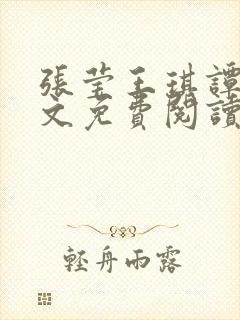 張莹王琪譚
文免費閱讀
輕舟雨露